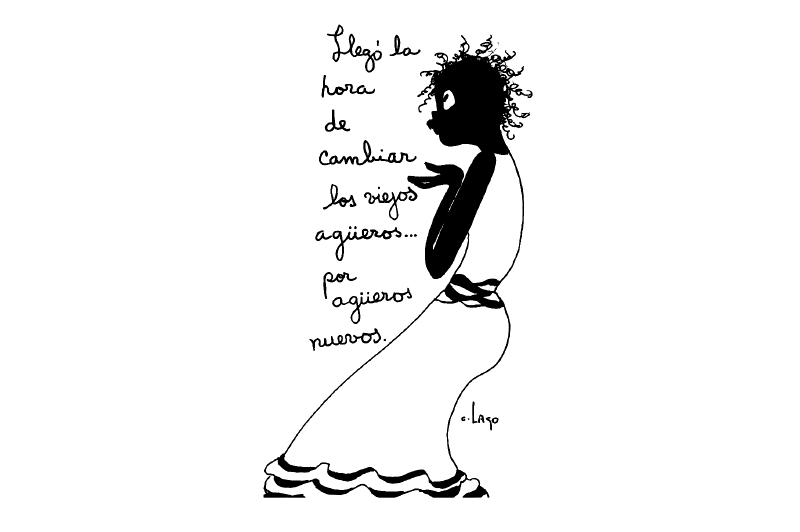 Llegó la
hora
de
cambiar
los viejos
agüeros...
por
agüeros
nuevos.
c. LAGO